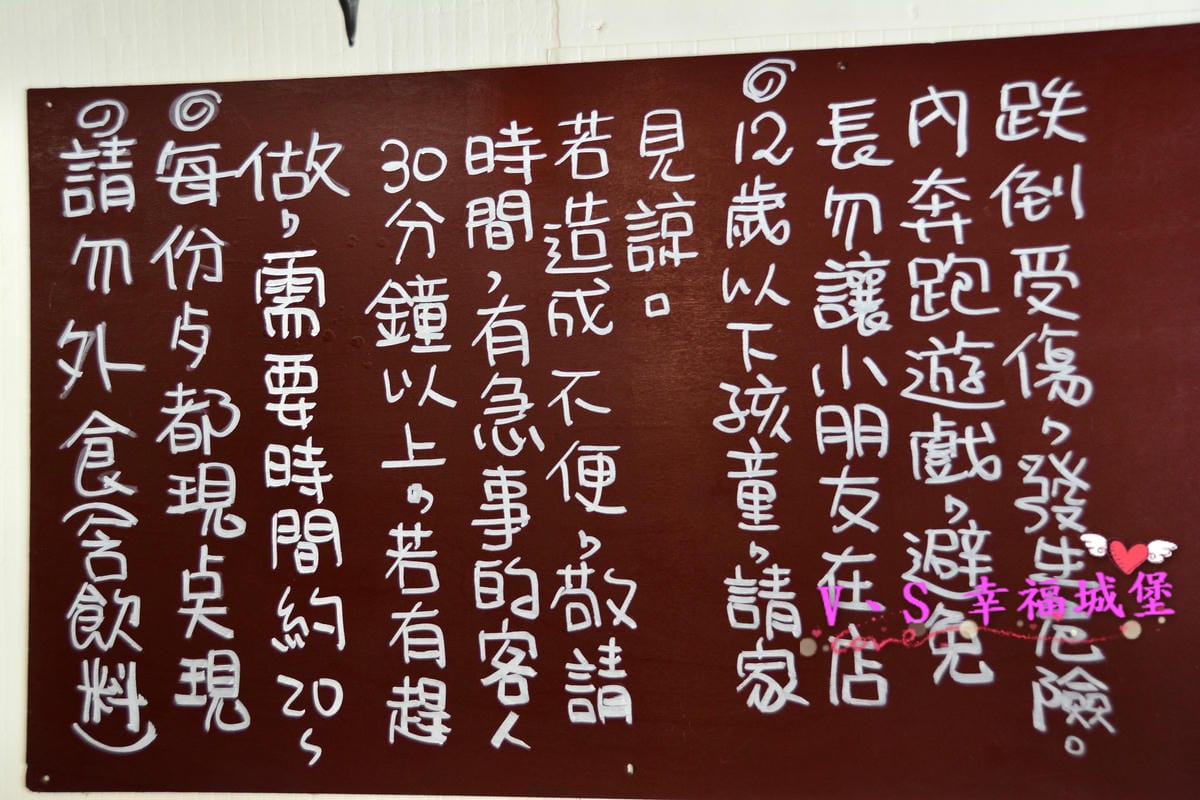 ◎請勿外食(含飲料)
◎每份歺都現点現
做,需要時間約20~
30分鐘以上,若有趕
時間,有急事的客人
若造成不便,敬請
見諒。
◎12歲以下孩童,請家
長勿讓小朋友在店
內奔跑遊戲,避免
跌倒受傷,發生危險。
V、S 幸福城堡